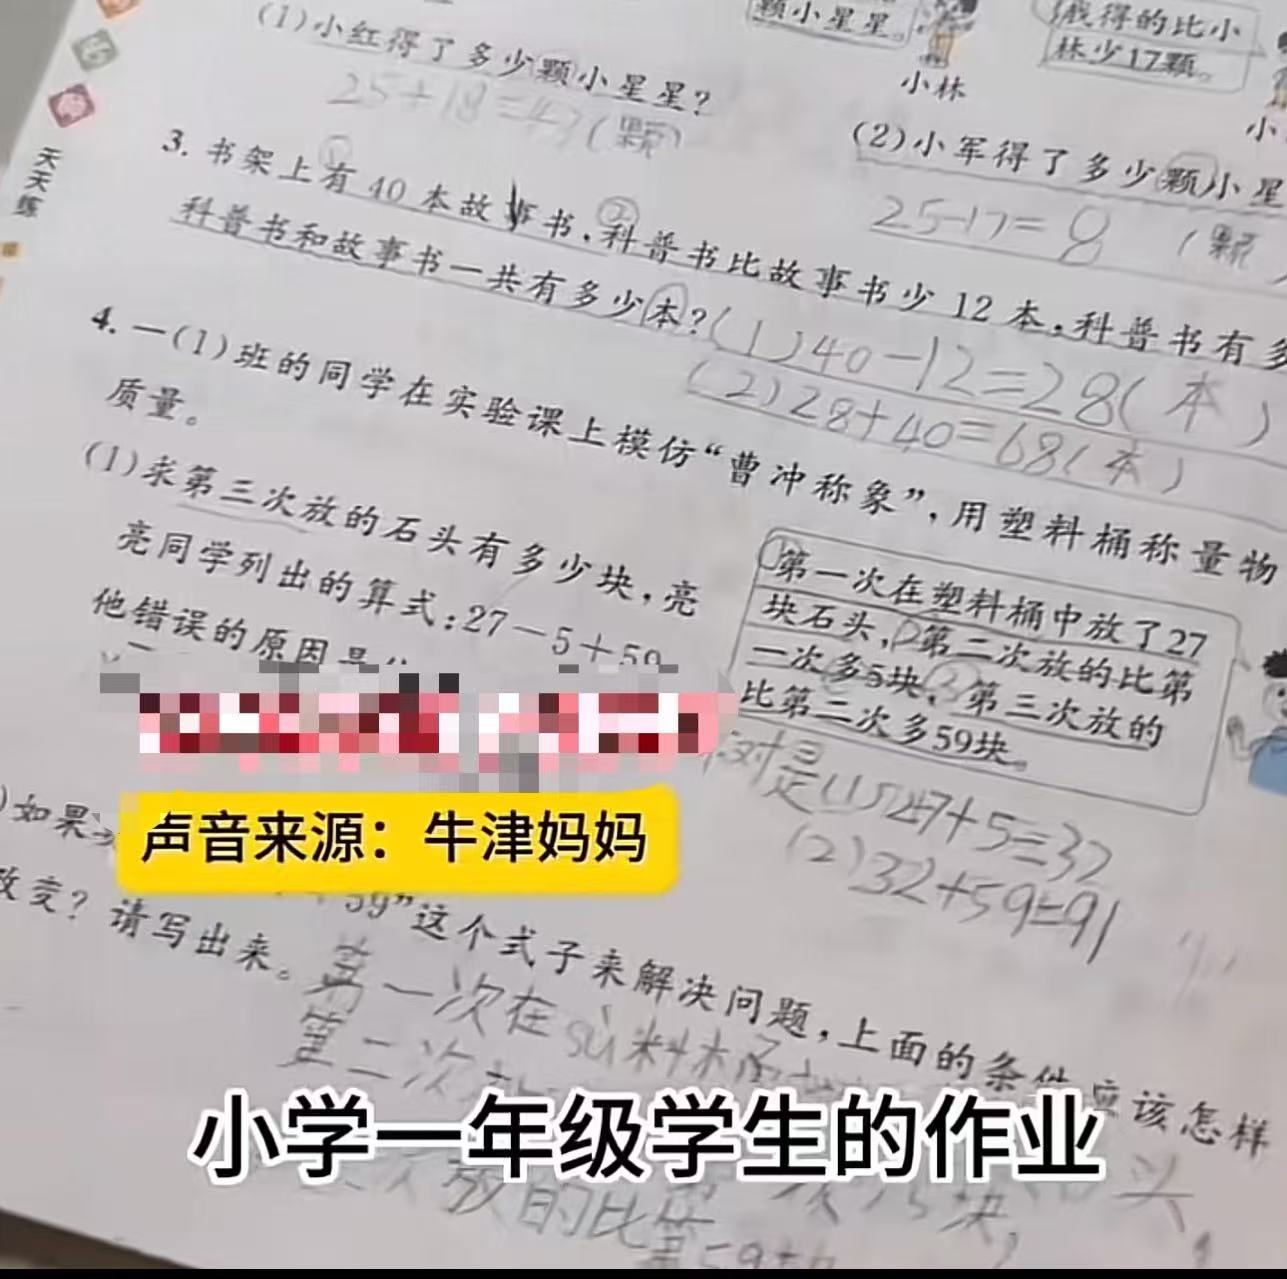 颗小星星。
我得的比小
林少17颗。
小林
(1)小红得了多少颗小星星?
25+18=43(颗)
(2)小军得了多少颗小星
25-17=8(颗
天天练
3.书架上有40本故事书,科普书比故事书少12本,科普书有多
科普书和故事书一共有多少本?
(1)40-12=28(本)
(2)28+40=68(本)
4.一(1)班的同学在实验课上模仿“曹冲称象”,用塑料桶称量物
质量。
(1)求第三次放的石头有多少块,亮
亮同学列出的算式:27-5+59
他错误的原因是什
第一次在塑料桶中放了27
块石头,第二次放的比第
一次多5块,第三次放的
比第二次多59块。
对是(1)27+5=32
(2)32+59=91
)如果
声音来源:牛津妈妈
59”这个式子来解决问题,上面的条件应该怎样
改变?请写出来。
第一次在sù料桶
第二次
小学一年级学生的作业
头,
放的比第
块,